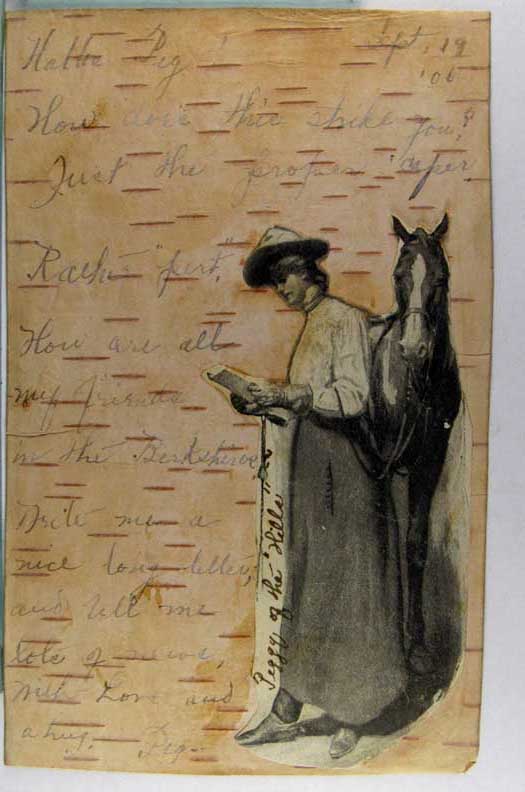 Hattie Peg
Sept. 19
'06
How does this strike you?
Just the proper caper
Rather "pert".
How are all
my friends
in the Berkshires
Write me a
nice long letter,
and tell me
lots of news,
With Love and
a hug. Peg-
Peggy of the Hills